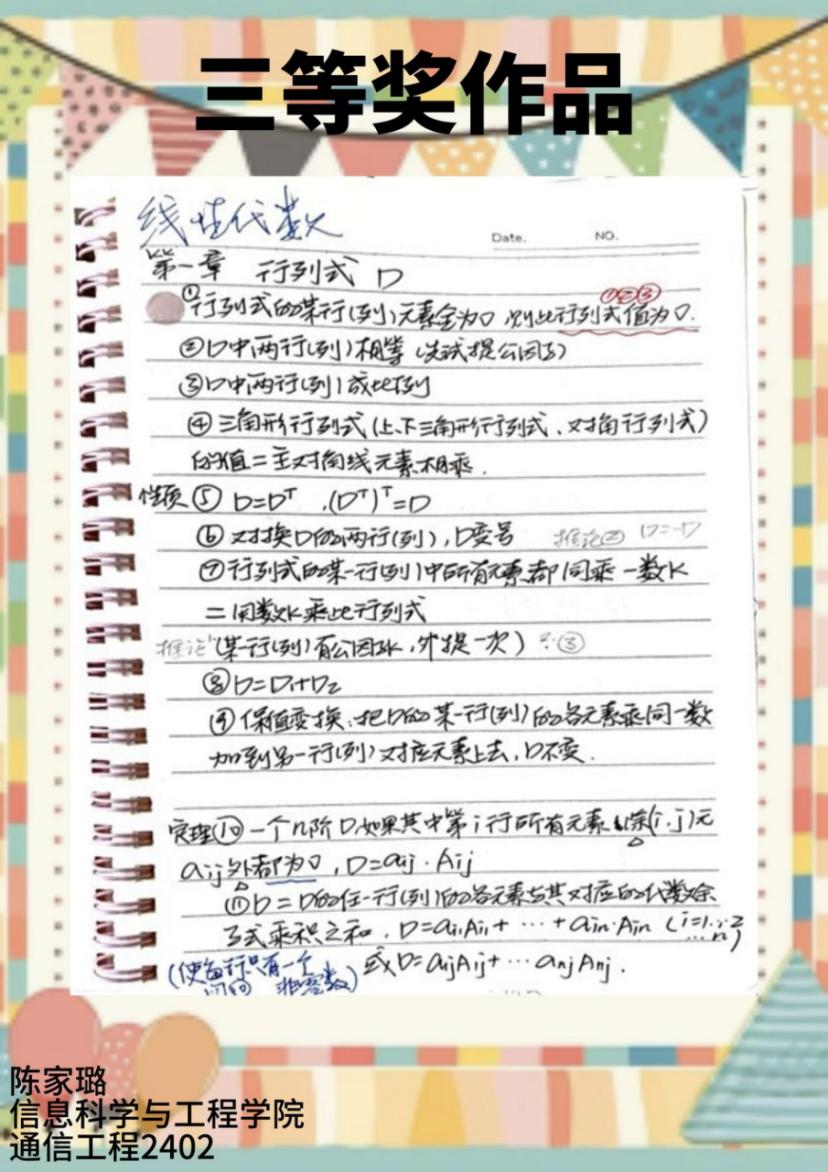 三等奖作品
线性代数
Date. NO.
第一章 行列式 D
①②③
①行列式的某行(列)元素全为0 则此行列式值为0.
②D中两行(列)相等(先试提公因子)
③D中两行(列)成比例
④三角形行列式(上、下三角形行列式、对角行列式)
的值=主对角线元素相乘.
性质⑤ D=Dᵀ .(Dᵀ)ᵀ=D
⑥对换D的两行(列),D变号 推论② D=-D
⑦行列式的某一行(列)中所有元素都同乘一数K
=用数K乘此行列式
推论(某行(列)有公因子k,外提一次) ∵③
⑧D=D₁+D₂
⑨保值变换:把D的某一行(列)的各元素乘同一数
加到另一行(列)对应元素上去,D不变.
定理⑩一个n阶D,如果其中第i行所有元素除(i.j)元
aij外都为0,D=aij·Aij
⑪D=D的任一行(列)的各元素与其对应的代数余
子式乘积之和. D=ai₁Ai₁+…+ain·Ain (i=1.2
…n)
(使每行只有一个 或D=a₁jA₁j+…anjAnj.
非零数)
陈家璐
信息科学与工程学院
通信工程2402